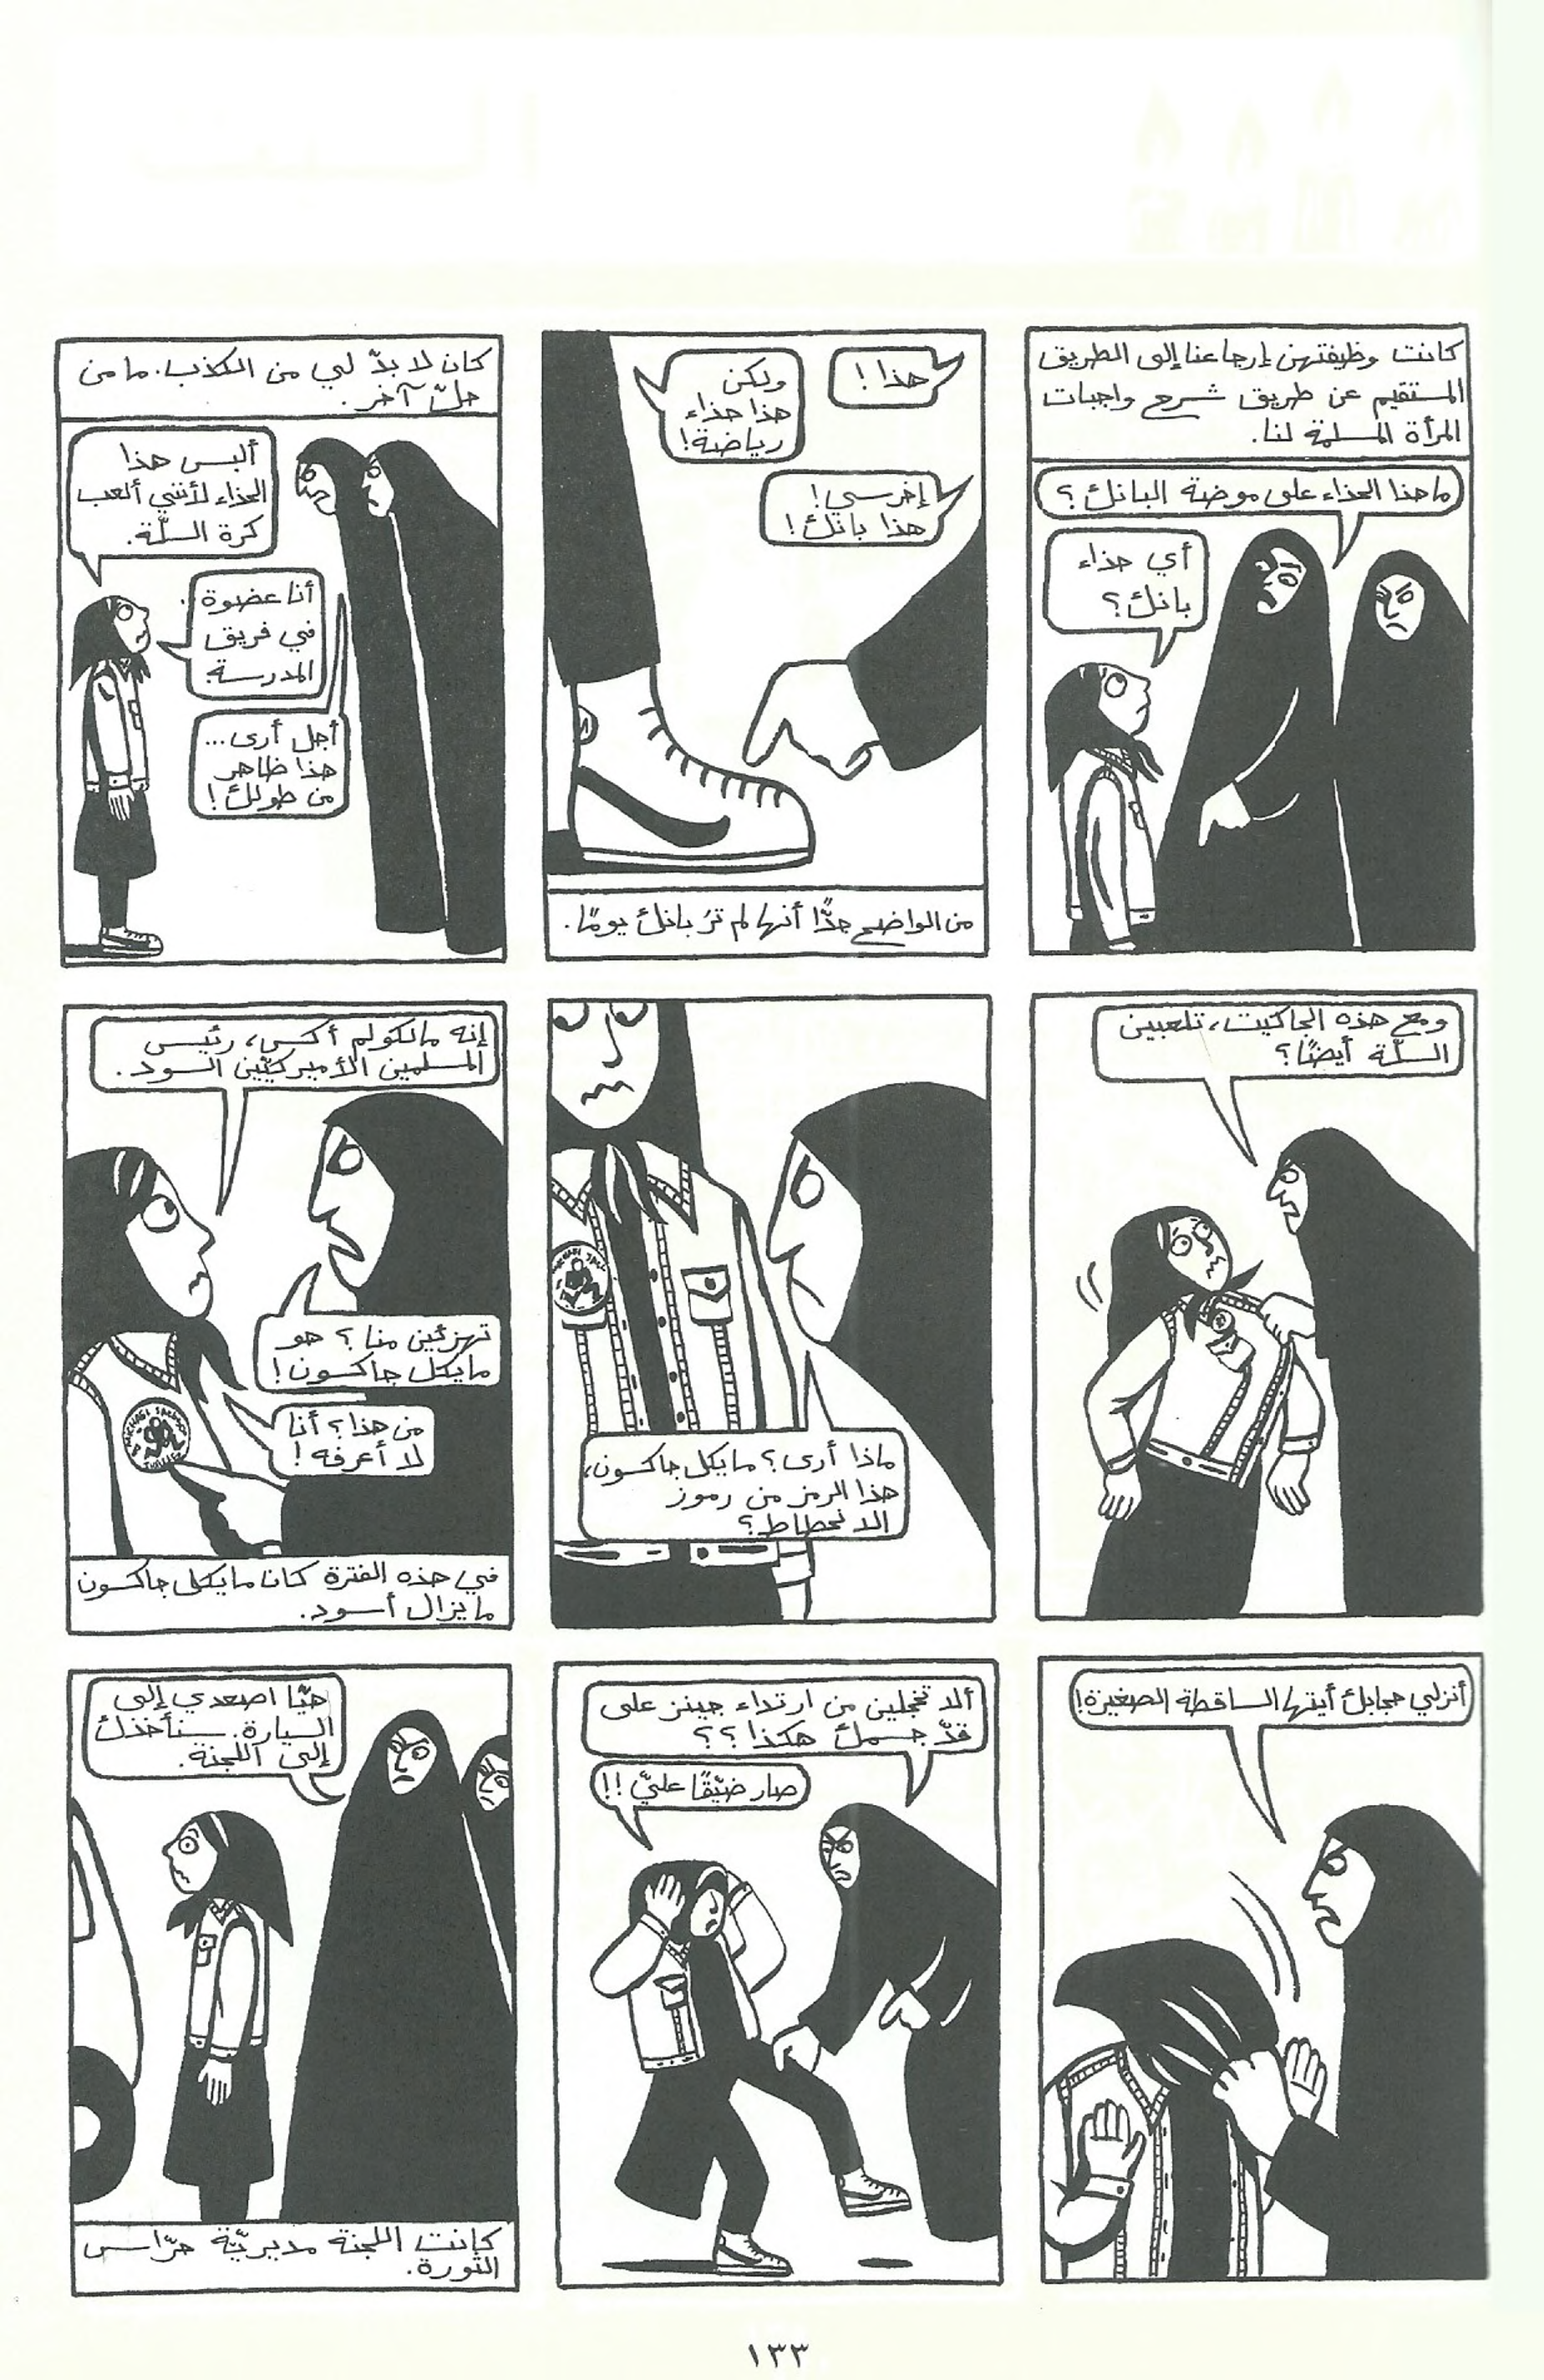 كانت وظيفتهن إرجاعنا إلى الطريق
المستقيم عن طريق شرح واجبات
المرأة المسلمة لنا.
ما هذا الحذاء على موضة البانك؟
أي حذاء
بانك؟
هذا!
ولكن
هذا حذاء
رياضة!
إخرسي!
هذا بانك!
من الواضح جدًّا أنها لم ترَ بانك يومًا.
كان لا بدّ لي من الكذب. ما من
حلّ آخر.
ألبس هذا
الحذاء لأنني ألعب
كرة السلّة.
أنا عضوة
في فريق
المدرسة.
أجل أرى...
هذا ظاهر
من طولك!
ومع هذه الجاكيت، تلعبين
السلّة أيضًا؟
ماذا أرى؟ مايكل جاكسون،
هذا الرمز من رموز
الانحطاط؟
إنه مالكولم أكس، رئيس
المسلمين الأميركيّين السود.
تهزئين منا؟ هو
مايكل جاكسون!
من هذا؟ أنا
لا أعرفه!
في هذه الفترة كان مايكل جاكسون
ما يزال أسود.
أنزلي حجابك أيتها الساقطة الصغيرة!
ألا تخجلين من ارتداء جينز على
قدّ جسمك هكذا؟؟
صار ضيّقًا عليّ!!
هيّا اصعدي إلى
السيارة. سنأخذك
إلى اللجنة.
كانت اللجنة مديريّة حرّاس
الثورة.
١٣٣